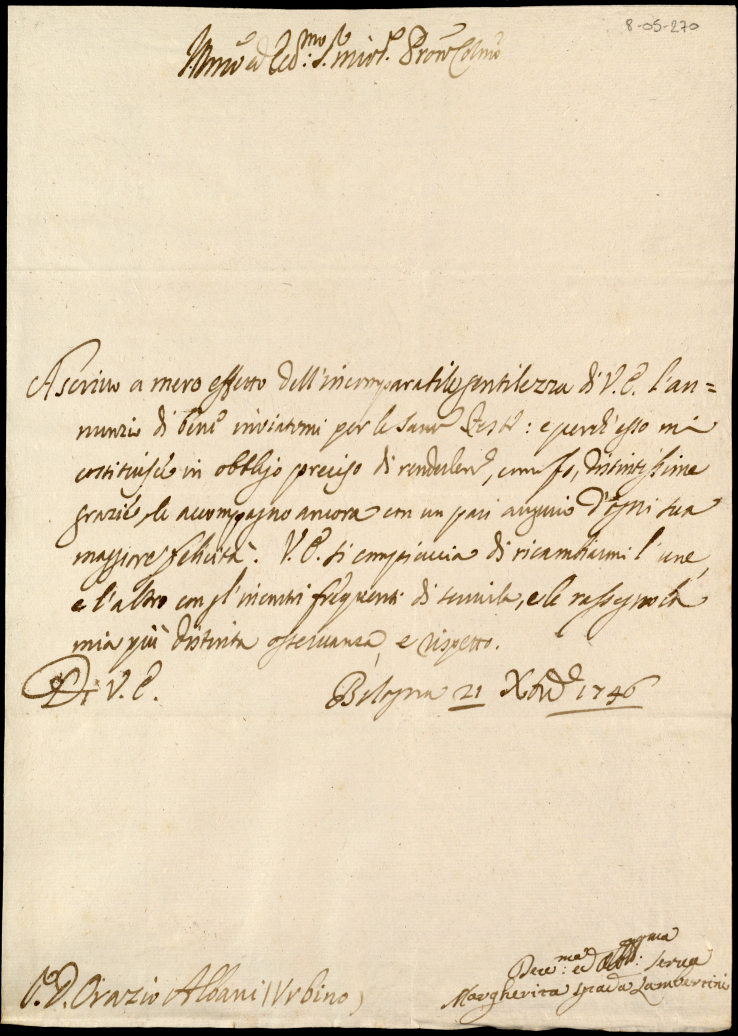 8-05-270
Ill.mo ed Ecc:mo Sig.r mio Sig.r Pron Colmo
Ascrivo a mero effetto dell'incomparabile gentilezza di V.E. l'an=
nunzio di bene inviatomi per le Sante Feste: e perch'esso mi
costituisce in obbligo preciso di rendulene, come fo, distintissime
grazie, le accompagno ancora con un pari augurio d'ogni sua
maggiore felicità. V.E. si compiaccia di ricambiarmi l'une,
e l'altro con gl'incontri frequenti di servirla, e le rassegno la
mia più distinta osservanza, e rispetto.
Di V.E.
Bologna 21 Xbre 1746
S.r D. Orazio Albani (Urbino)
Deve:ma ed Obb: serva
Margherita Spada Lambertini